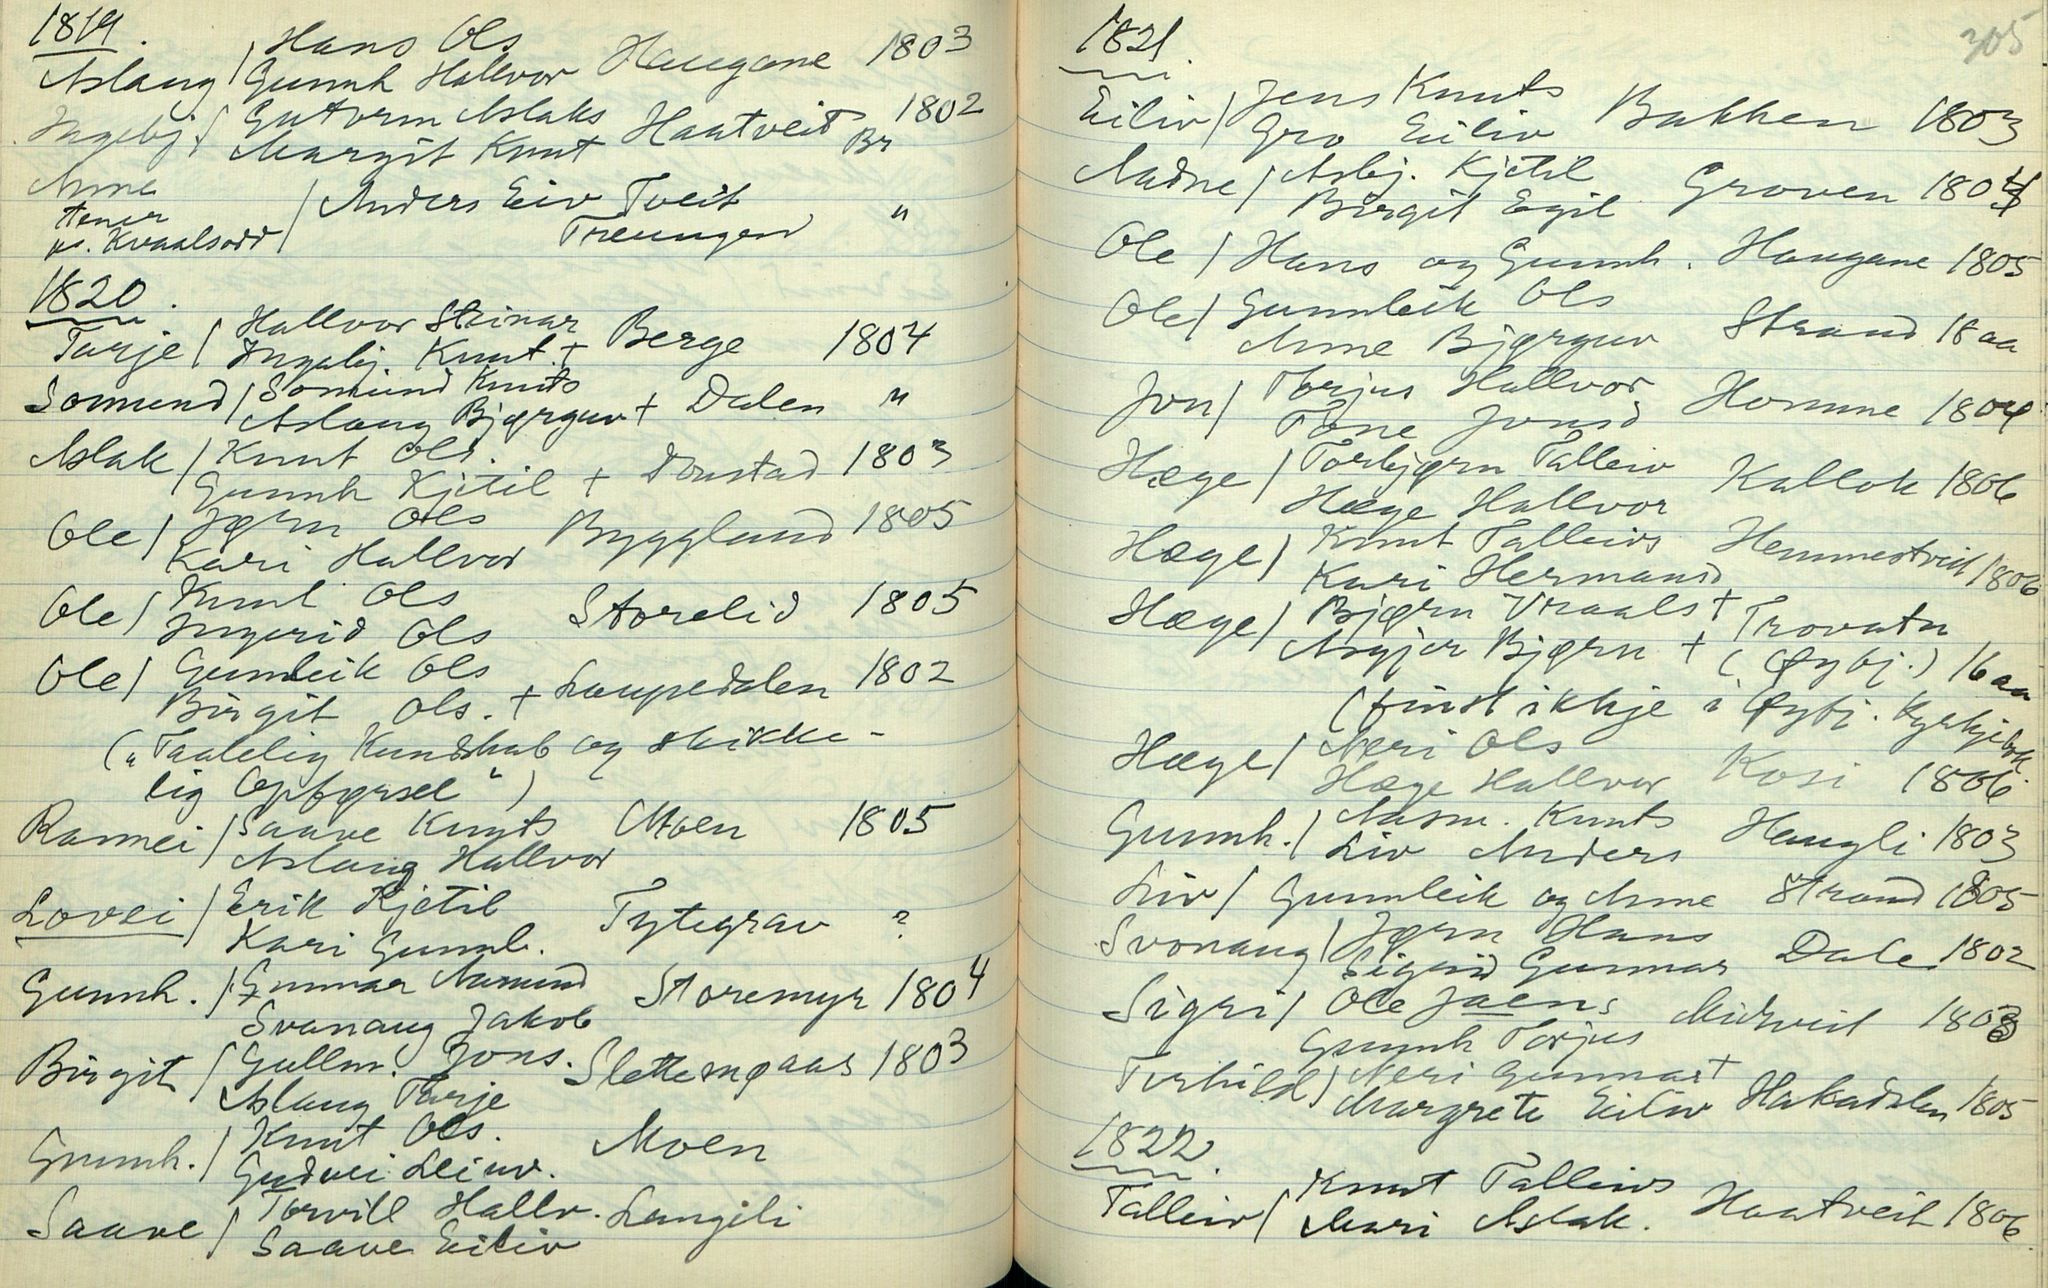 1819.
Aslaug / Hans Ols
Gunnh Hallvor Haugane 1803
Ingebj / Gutorm Aslaks
Margit Knut Haatveit Br 1802
Anne
p.. Kvaalsodd / Anders Eiv Tveit
Treungen "
1820.
Tarje / Hallvor Steinar
Ingebj. Knut + Berge 1804
Somund / Somund Knuts
Aslaug Bjørguv + Dalen "
Aslak / Knut Ols.
Gunnh Kjetil + Donstad 1803
Ole / Jørn Ols
Kari Hallvor Byggland 1805
Ole / Knut Ols
Ingerid Ols Storelid 1805
Ole / Gunleik Ols
Birgit Ols. + Laupedalen 1802
(„Taalelig Kundskab og skikke-
lig Opførsel")
Ramnei / Saave Knuts
Aslaug Hallvor Moen 1805
Lovei / Erik Kjetil
Kari Gunnl. Tytegrav ?
Gunnh. / Gunnar Aamund
Svanaug Jakob Storemyr 1804
Birgit / Gullm. Jons.
Aslaug Tarje Slettemoaas 1803
Gunnh. / Knut Ols.
Gudvei Leiuv. Moen
Saave / Torvill Hallv.
Saave Eiliv Langeli
305
1821.
Eiliv / Jens Knuts
Gro Eiliv Bakken 1803
Aadne / Asbj. Kjetil
Birgit Egil Groven 1804
Ole / Hans og Gunnh. Haugane 1805
Ole / Gunnleik Ols
Anne Bjørguv Strand 18 aa
Jon / Torjus Hallvor
Tone Jonsd Homme 1804
Hæge / Torbjørn Talleiv
Hæge Hallvor Kallok 1806
Hæge / Knut Talleivs
Kari Hermansd Hemmestveit 1806
Hæge / Bjørn Vraals +
Asgjer Bjørn + Trovatn
(Øybj.) 16 aa
(finst ikkje i Øybj. Kyrkjebok.
Hæge / Neri Ols
Hæge Hallvor Kosi 1806
Gunnh. / Aasm. Knuts
Liv Anders Haugli 1803
Liv / Gunnleik og Anne Strand 1805
Svonaug / Jørn Hans
Sigrid Gunnar Dale 1802
Sigri / Ole Jaens
Gunnh Torjus Midtveit 1803
Torhild / Neri Gunnar +
Margrete Eiliv Hakadalen 1805
1822.
Talleiv / Knut Talleivs
Mari Aslak. Haatveit 1806